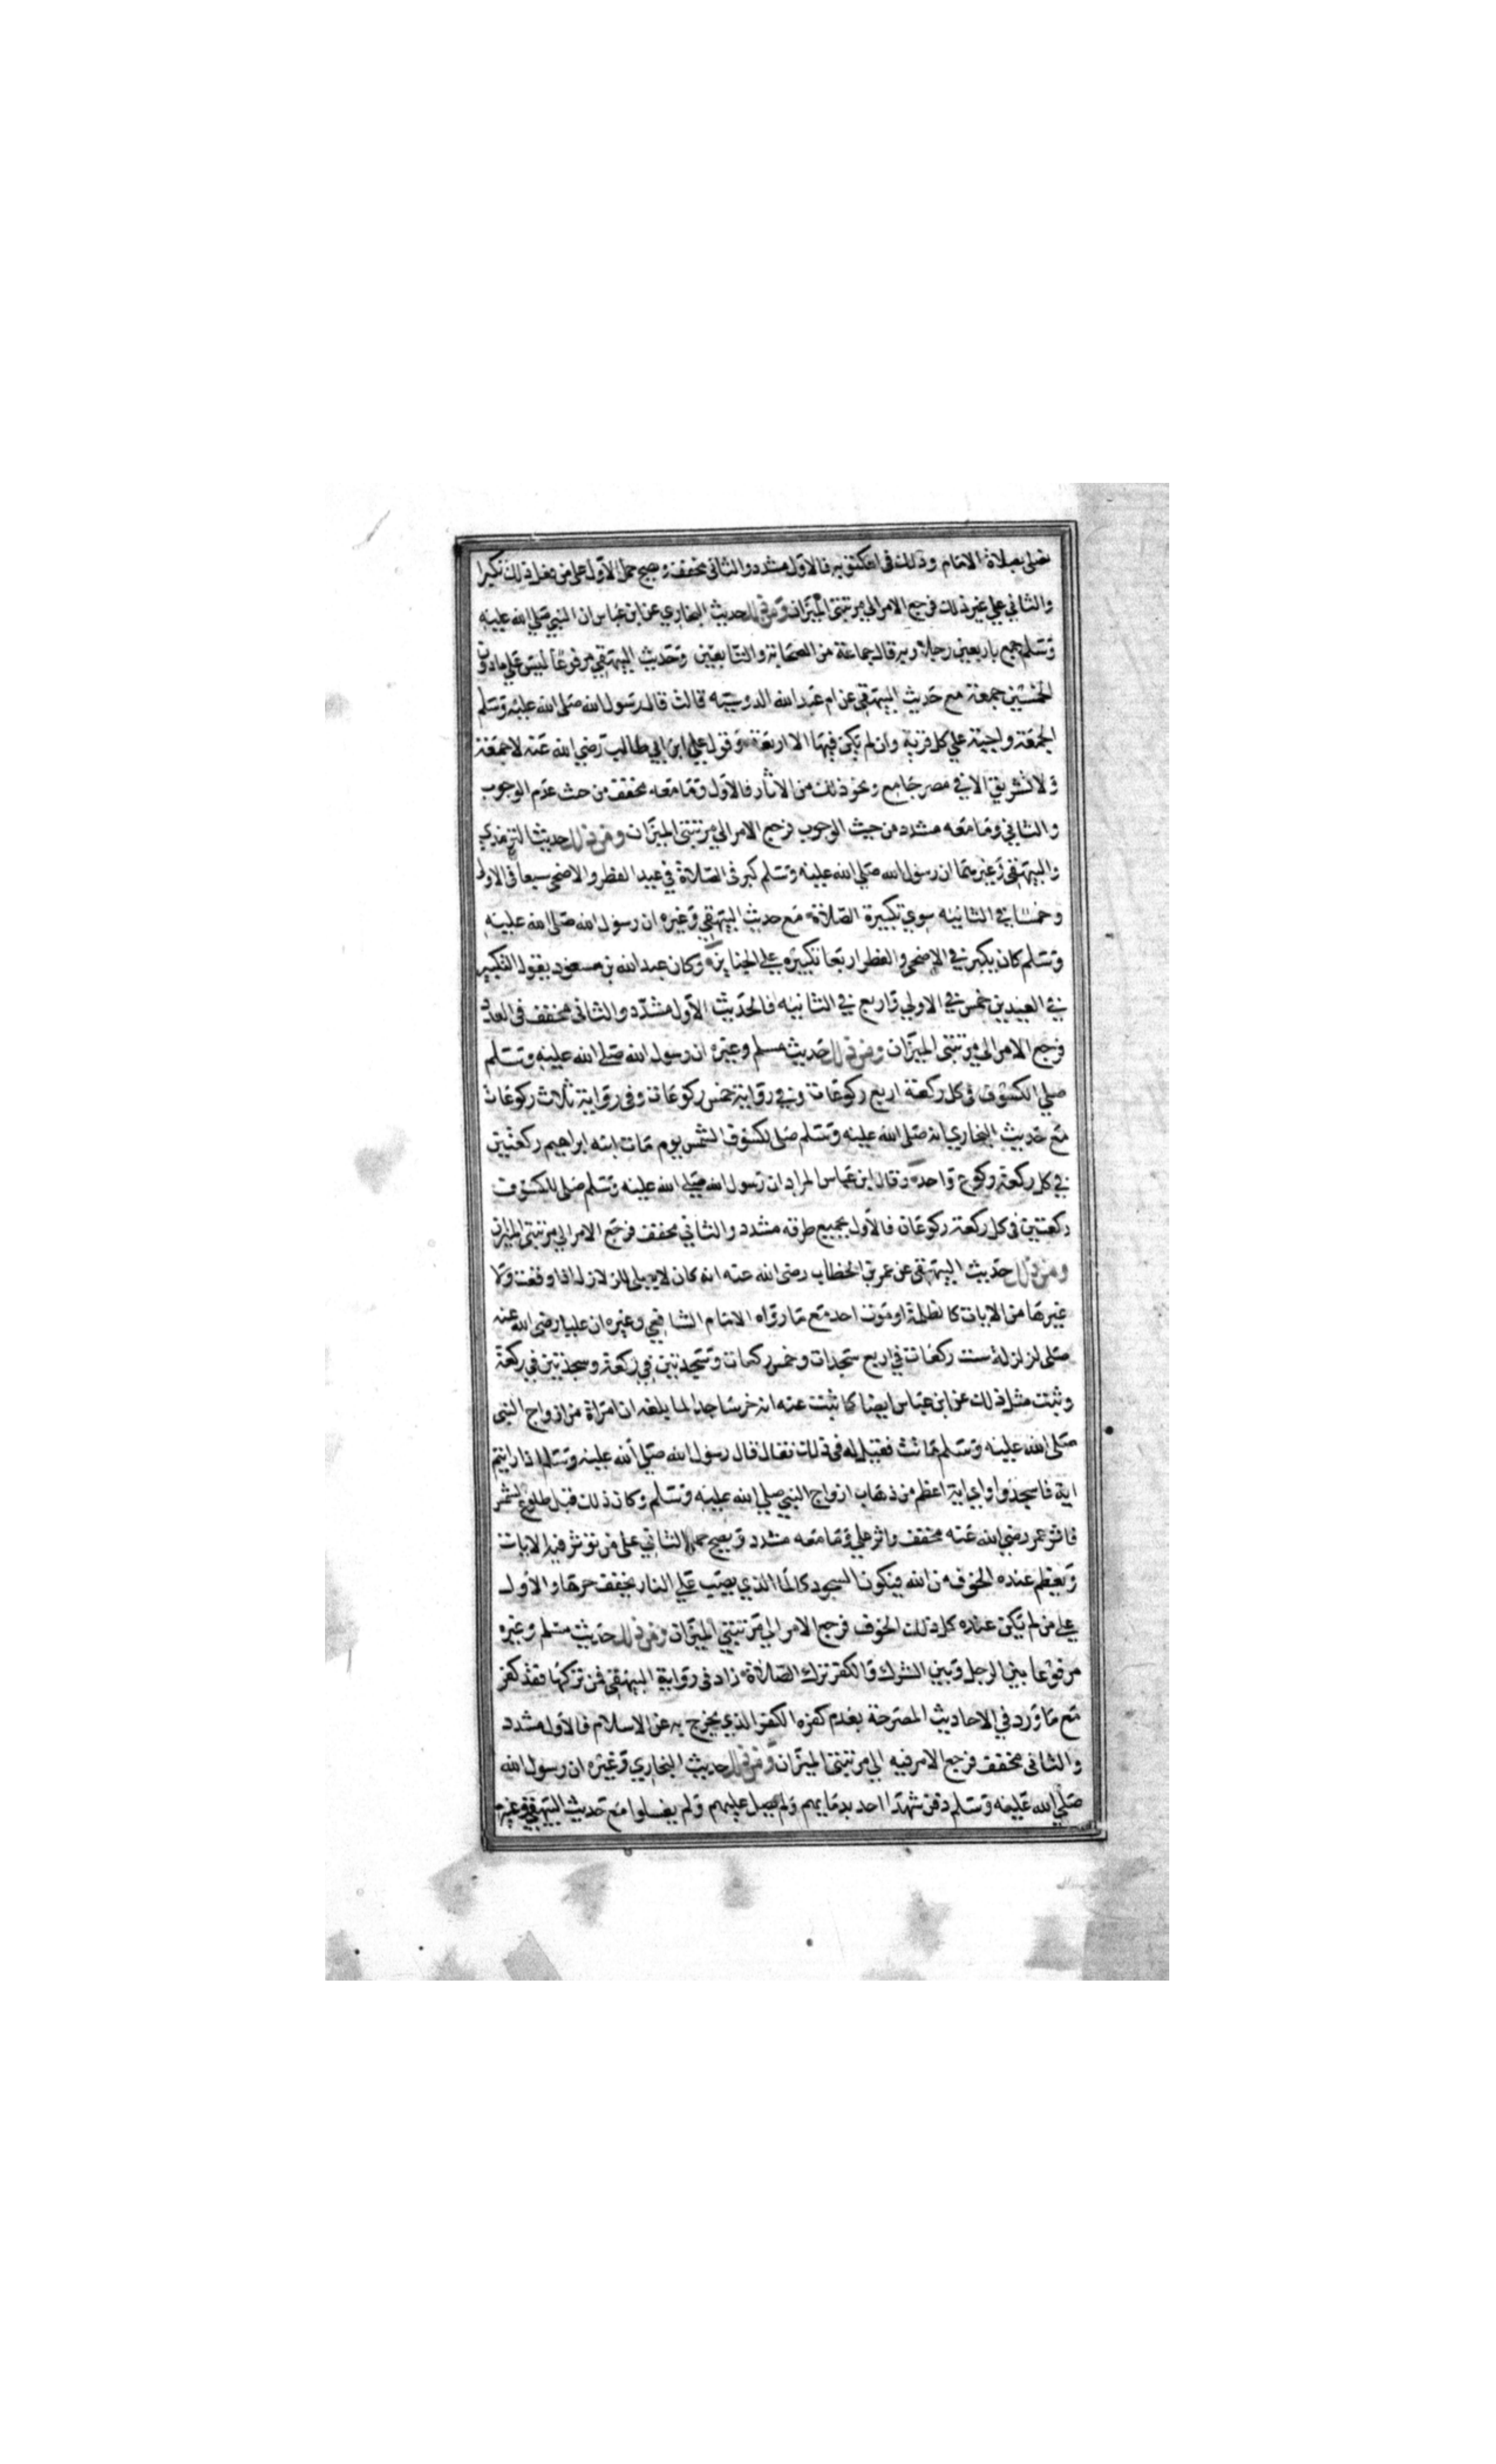 نصلى بصلاة الامام وذلك فى المكتوبه فالاول مشدد والثانى مخفف وصح حمل الاول على من فعل ذلك تكبرا
والثاني علي غير ذلك فرجع الامر الي مرتبتى الميزان ومن ذلك حديث البخاري عن ابن عباس ان النبي صلي الله عليه
وسلم جمع باربعين رجلا وبه قال جماعة من الصحابة والتابعين وحديث البيهقي مرفوعا ليس علي ما دون
الخمسين جمعة مع حديث البيهقي عن ام عبد الله الدوسيه قالت قال رسول الله صلى الله عليه وسلم
الجمعة واجبة علي كل قرية وان لم يكن فيها الا اربعة وقول علي ابن ابي طالب رضي الله عنه لا جمعة
ولا تشريق الا في مصر جامع ونحو ذلك من الاثار فالاول وما معه مخفف من حث عدم الوجوب
والثاني وما معه مشدد من حيث الوجوب فرجع الامر الي مرتبتي الميزان ومن ذلك حديث الترمذي
والبيهقي وغيرهما ان رسول الله صلي الله عليه وسلم كبر فى الصلاة في عيد الفطر والاضحى سبعا فى الاولى
وخمسا في الثانيه سوي تكبيرة الصلاة مع حديث البيهقي وغيره ان رسول الله صلى الله عليه
وسلم كان يكبر في الاضحى والفطر اربعا تكبيره علي الجنايز وكان عبد الله بن مسعود يقول التكبير
في العيدين خمس في الاولي واربع في الثانيه فالحديث الاول مشدد والثانى مخفف فى العدد
فرجع الامر الي مرتبتى الميزان ومن ذلك حديث مسلم وغيره ان رسول الله صلي الله عليه وسلم
صلي الكسوف فى كل ركعة اربع ركوعات وفي رواية خمس ركوعات وفى رواية ثلاث ركوعات
مع حديث البخاري انه صلى الله عليه وسلم صلى لكسوف الشمس يوم مات ابنه ابراهيم ركعتين
في كل ركعة ركوع واحد وقال ابن عباس المراد ان رسول الله صلي الله عليه وسلم صلى للكسوف
ركعتين فى كل ركعة ركوعان فالاول بجميع طرقه مشدد والثاني مخفف فرجع الامر الي مرتبتي الميزان
ومن ذلك حديث البيهقى عن عمر بن الخطاب رضى الله عنه انه كان لا يصلى للزلازل اذا وقعت ولا
غيرها من الايات كالظلمة او موت احد مع ما رواه الامام الشافعي وغيره ان عليا رضى الله عنه
صلى لزلزلة ست ركعات في اربع سجدات وخمس ركعات وسجدتين في ركعة وسجدتين في ركعة
وثبت مثل ذلك عن ابن عباس ايضا كما ثبت عنه انه خر ساجدا لما بلغه ان امراة من ازواج النبى
صلى الله عليه وسلم ماتت فقيل له فى ذلك فقال قال رسول الله صلي الله عليه وسلم اذا رايتم
اية فاسجدوا واي اية اعظم من ذهاب ازواج النبي صلي الله عليه وسلم وكان ذلك قبل طلوع الشمس
فاثر عمر رضي الله عنه مخفف واثر علي وما معه مشدد ويصح حمل الثاني على من تؤثر فيه الايات
ويعظم عنده الخوف من الله فيكون السجود كالماء الذي يصب علي النار يخفف حرها والاول
علي من لم يكن عنده كل ذلك الخوف فرجع الامر الي مرتبتي الميزان ومن ذلك حديث مسلم وغيره
مرفوعا بين الرجل وبين الشرك والكفر ترك الصلاة زاد فى رواية البيهقى فمن تركها فقد كفر
مع ما ورد في الاحاديث المصرحة بعدم كفره الكفر الذي يخرج به عن الاسلام فالاول مشدد
والثانى مخفف فرجع الامر فيه الي مرتبتى الميزان ومن ذلك حديث البخاري وغيره ان رسول الله
صلي الله عليه وسلم دفن شهدا احد بدمايهم ولم يصل عليهم ولم يغسلوا مع حديث البيهقي وغيره